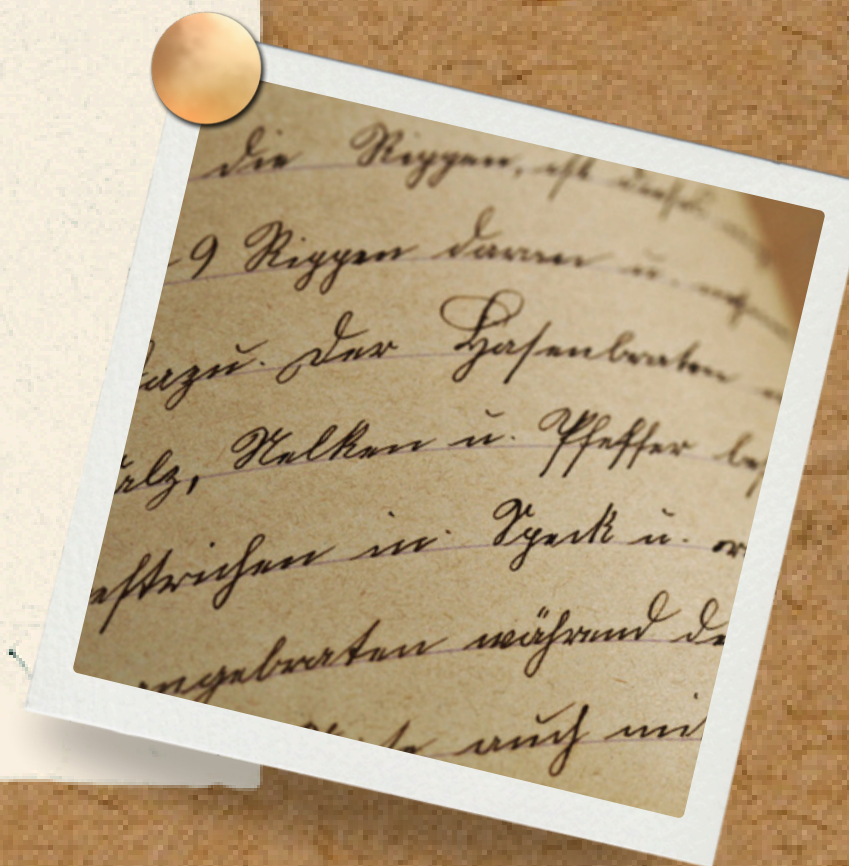 die Rippen, ist diese
9 Rippen daran u.
dazu. Der Hasenbraten
Salz, Nelken u. Pfeffer
estrichen in Speck u.
angebraten während de
auch mi